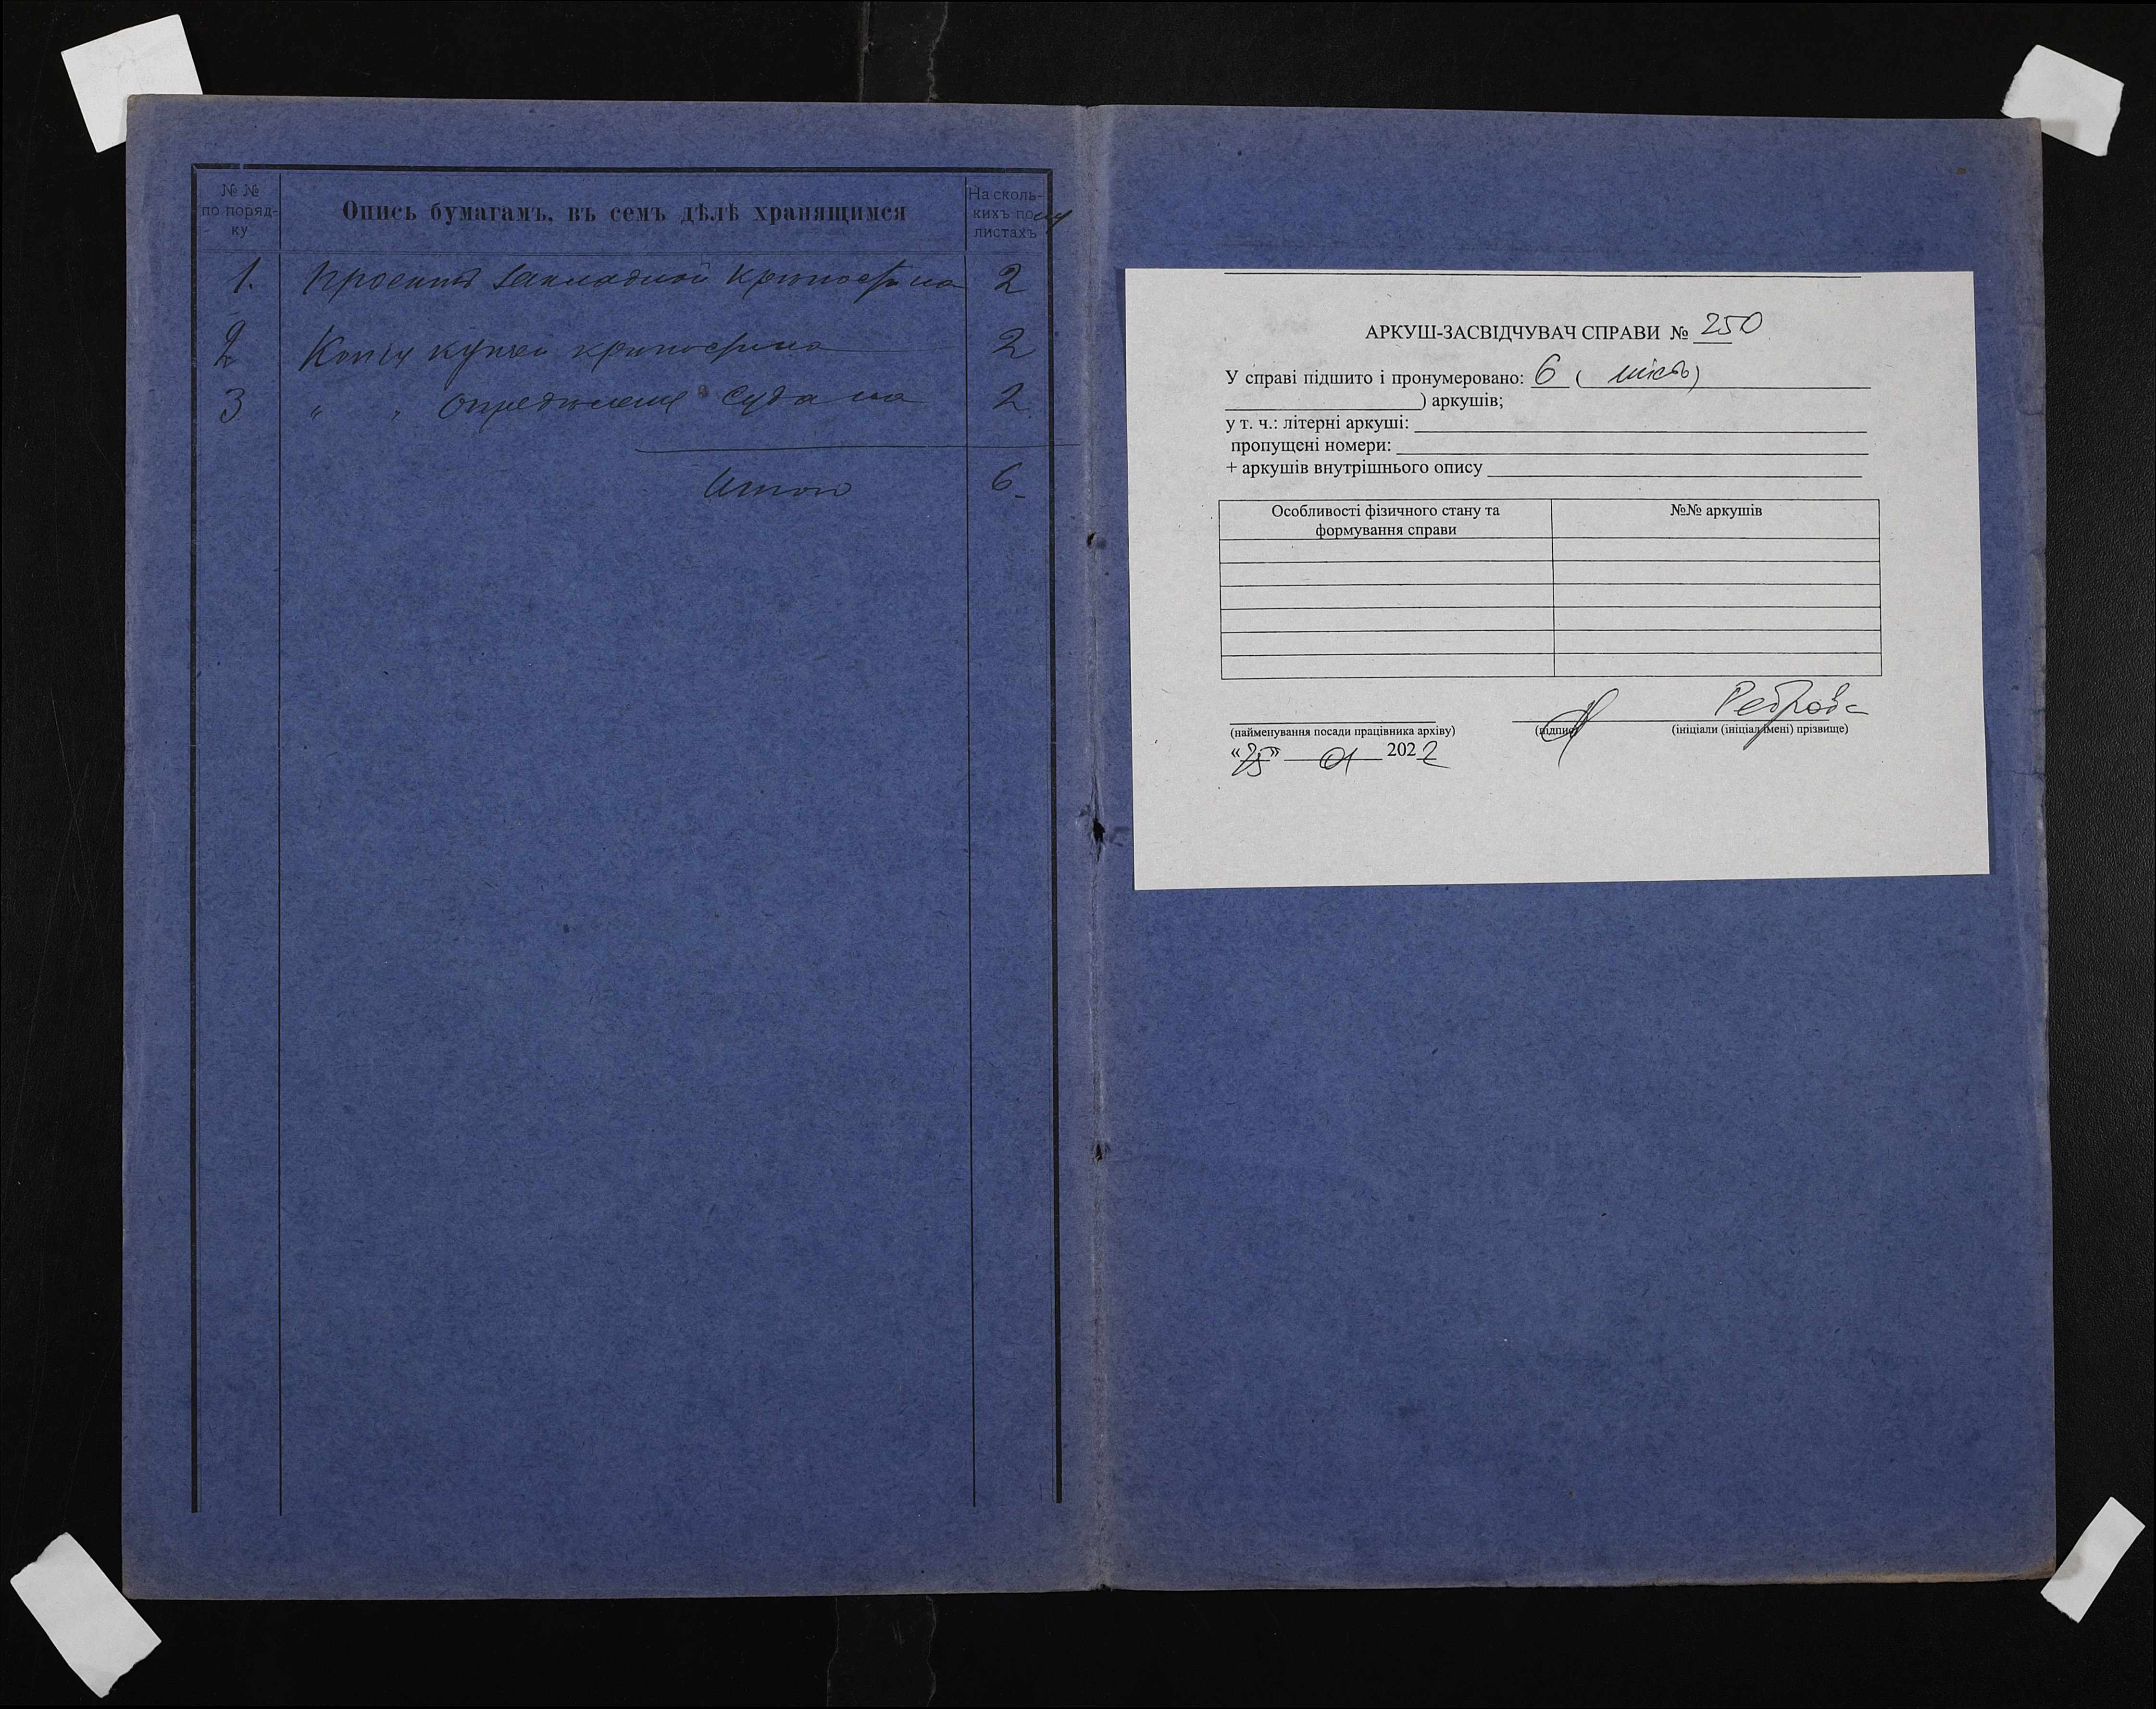 № №
по поряд-
ку
Опись бумагамъ, въ семъ дѣлѣ хранящимся
На сколь-
кихъ по
листахъ
1. Проектъ закладной крѣпости на 2
2 Копіи купчей крѣпости на 2
3 " " опредѣленія Суда на 2.
Итого 6.
АРКУШ-ЗАСВІДЧУВАЧ СПРАВИ № 250
У справі підшито і пронумеровано: 6 ( шість)
) аркушів;
у т. ч.: літерні аркуші:
пропущені номери:
+ аркушів внутрішнього опису
Особливості фізичного стану та
формування справи
№№ аркушів
Реброва
(найменування посади працівника архіву) (підпис) (ініціали (ініціал імені) прізвище)
«25» 01 2022